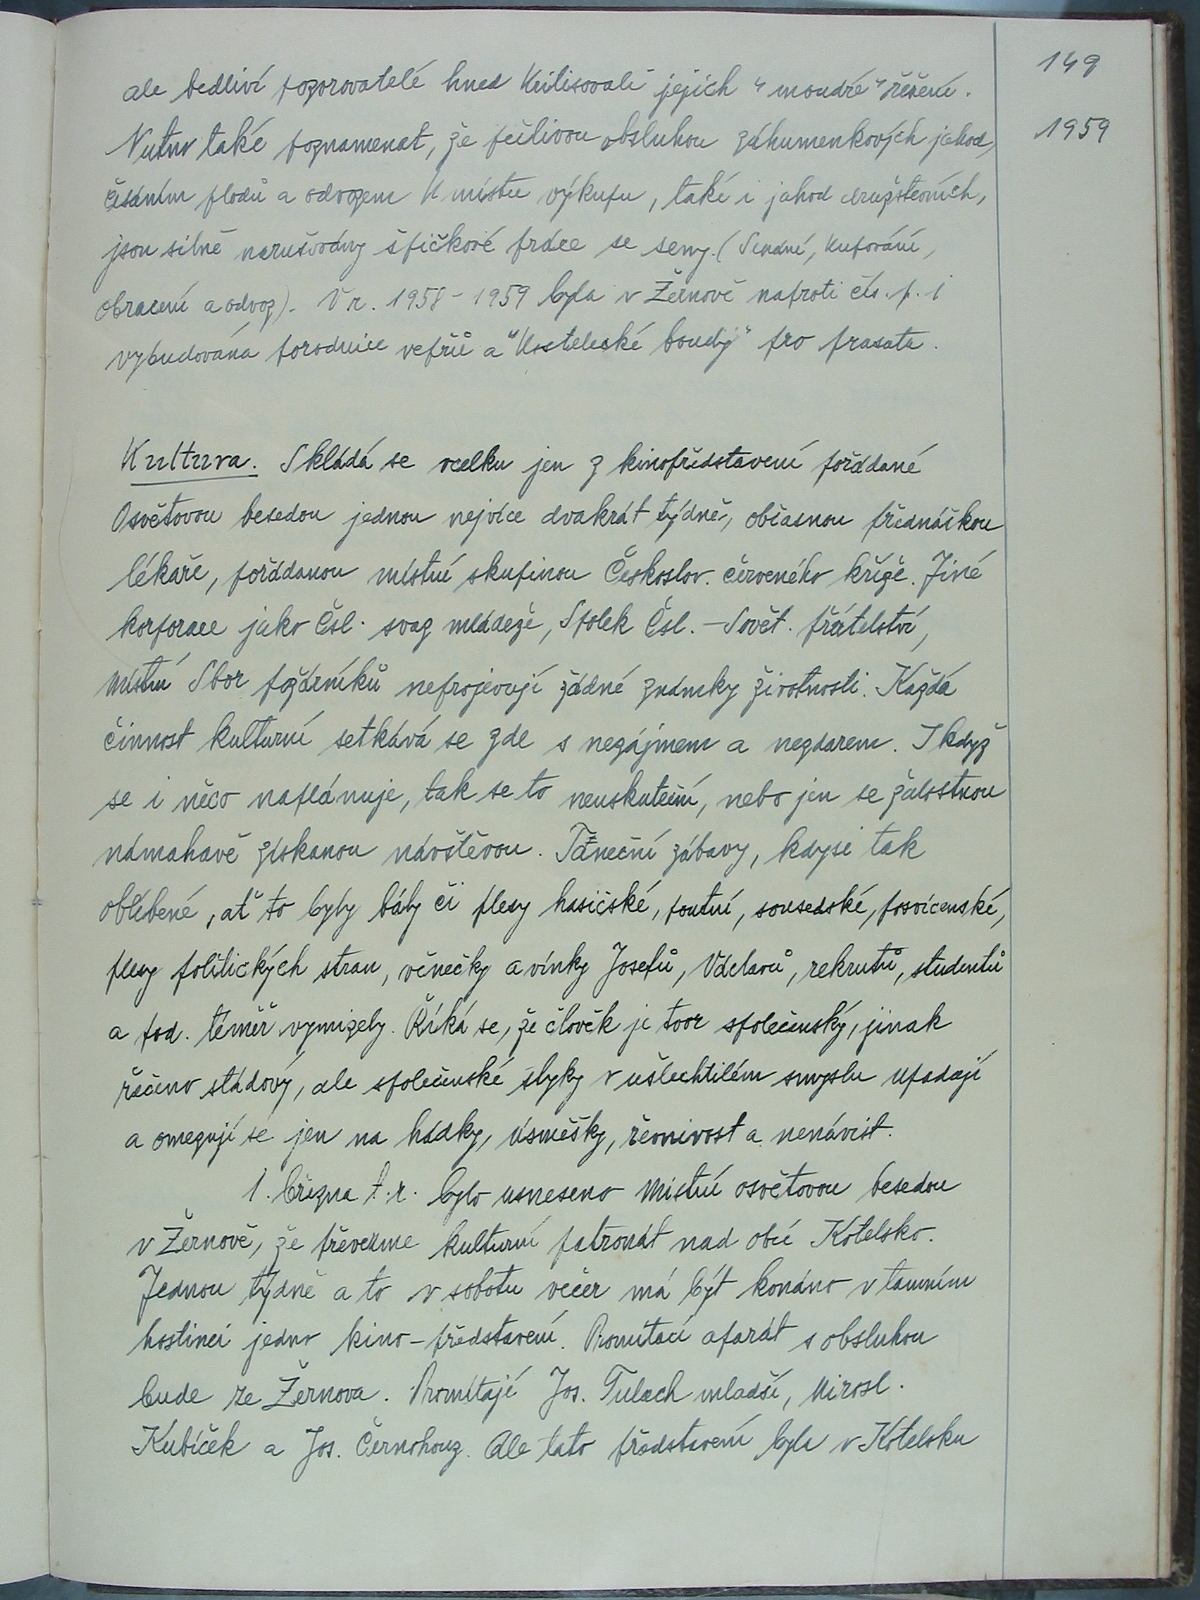 149
1959
ale bedliví pozorovatelé hned kritisovali jejich "moudré" řešení.
Nutno také poznamenat, že pečlivou obsluhou záhumenkových jahod,
česáním plodů a odvozem k místu výkupu, také i jahod družstevních,
jsou silně narušovány špičkové práce se seny. (Sendní, kupování,
obracení a odvoz). V r. 1958-1959 byla v Žernově naproti čís. p. 1
vybudována porodnice vepřů a "Kostelecké boudy" pro prasata.
Kultura. Skládá se vcelku jen z kinopředstavení pořádané
Osvětovou besedou jednou nejvíce dvakrát týdně, občasnou přednáškou
lékaře, pořádanou místní skupinou Českoslov. červeného kříže. Jiné
korporace jako Čsl. svaz mládeže, Spolek Čsl.-Sovět. přátelství,
místní Sbor požárníků neprojevují žádné známky životnosti. Každá
činnost kulturní setkává se zde s nezájmem a nezdarem. I když
se i něco naplánuje, tak se to neuskuteční, nebo jen se žalostnou
námahavě získanou návštěvou. Taneční zábavy, kdysi tak
oblíbené, ať to byly bály či plesy hasičské, poutní, sousedské, posvícenské,
plesy politických stran, věnečky a vínky Josefů, Václavů, rekrutů, studentů
a pod. téměř vymizely. Říká se, že člověk je tvor společenský, jinak
řečeno stádový, ale společenské styky v ušlechtilém smyslu upadají
a omezují se jen na hádky, úsměšky, řevnivost a nenávist.
1. března t. r. bylo usneseno Místní osvětovou besedou
v Žernově, že převezme kulturní patronát nad obcí Kotelsko.
Jednou týdně a to v sobotu večer má být konáno v tamním
hostinci jedno kino-představení. Promítací aparát s obsluhou
bude ze Žernova. Promítají Jos. Tulach mladší, Mirosl.
Kubíček a Jos. Černohouz. Ale tato představení byla v Kotelsku